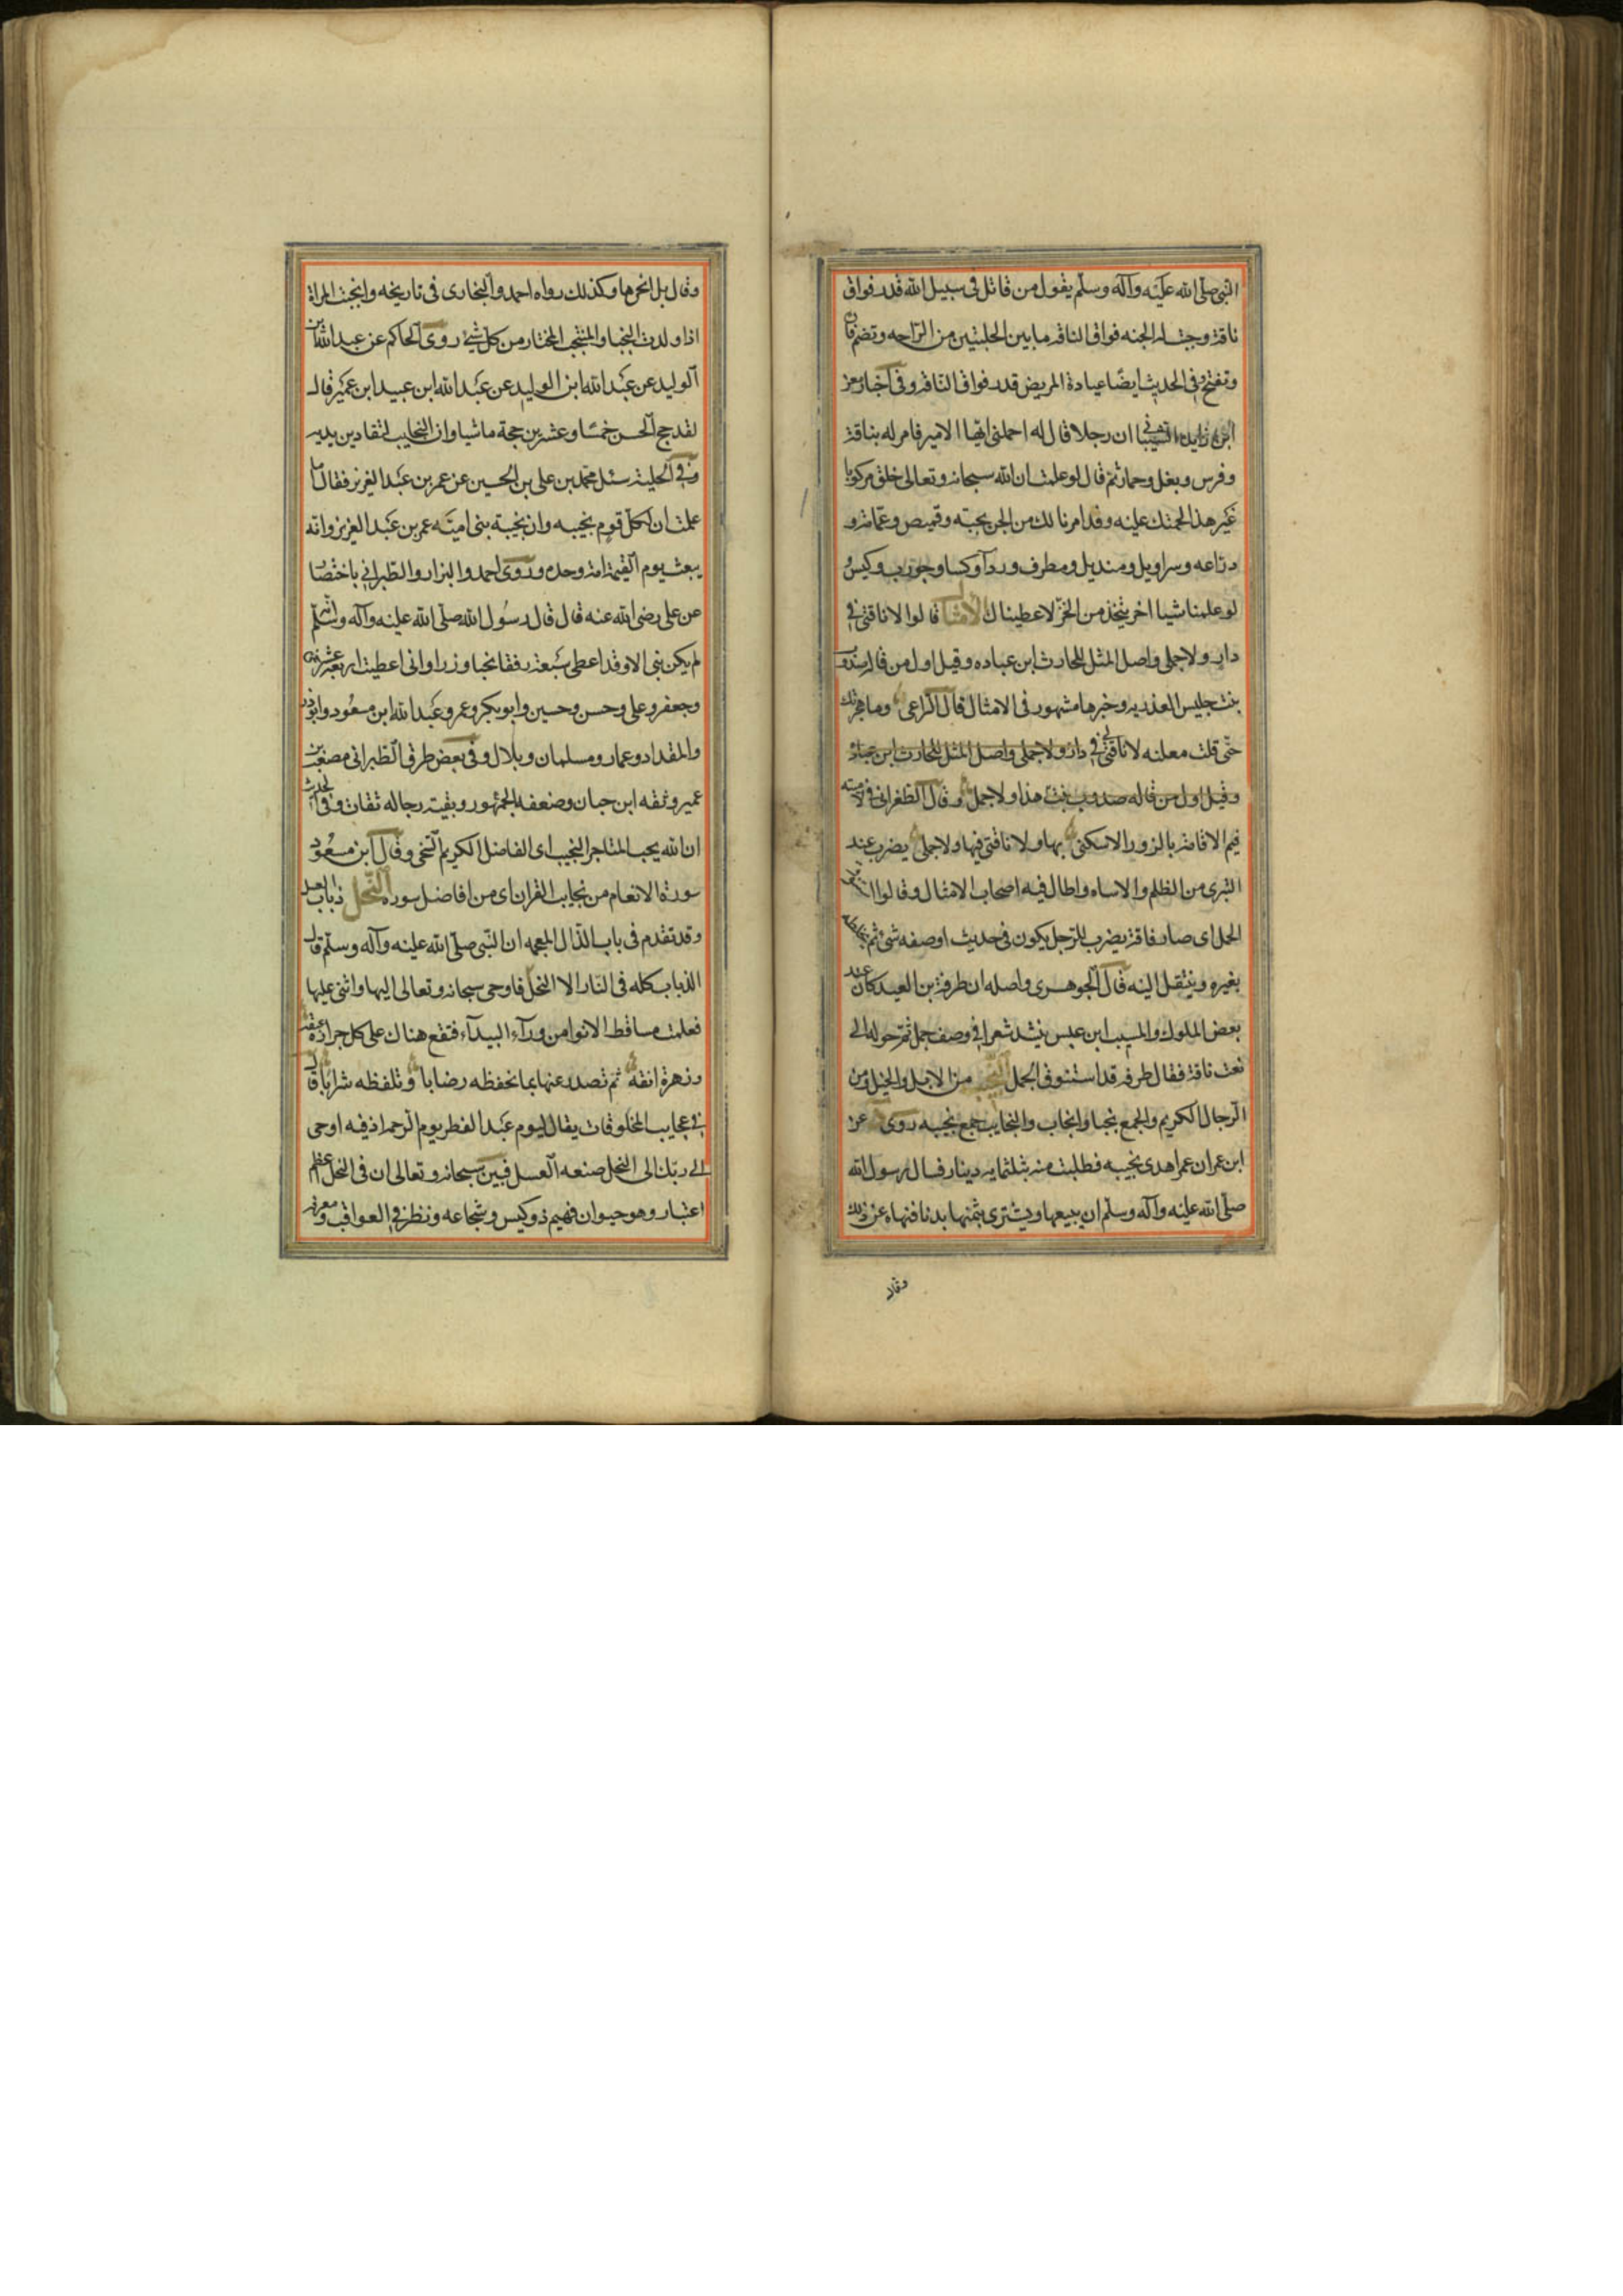 النبى صلى الله عليه وآله وسلم يقول من قاتل فى سبيل الله قدر فواق
ناقة وجبت له الجنه فواق الناقه ما بين الحلبتين من الراحه وتضم فاؤ
وتفتح وفى الحديث ايضا عيادة المريض قدر فواق الناقة وفى اخبار معن
ابن زايده الشيبانى ان رجلا قال له احملنى ايها الامير فامر له بناقة
وفرس وبغل وحمار ثم قال لو علمت ان الله سبحانه وتعالى خلق مركوبا
غير هذا لحملتك عليه وقد امرنا لك من الخز بجبة وقميص وعمامة و
دراعه وسراويل ومنديل ومطرف وردآ وكسا وجورب وكيس و
لو علمنا شيا اخر يتخذ من الخز لاعطيناك الامثال قالوا لا ناقتى فى
دار ولا جملى واصل المثل للحارث ابن عباده وقيل اول من قاله صدوف
بنت جليس العذريه وخبرها مشهور فى الامثال قال الراعى وما هجرتك
حتى قلت معلنه لا ناقتى لى فى دار ولا جملى واصل المثل للحارث ابن عباد
وقيل اول من قاله صدوب بنت هذا ولا جمل وقال الطغرانى فى لاميته
فيم الاقامة بالزورا لا سكنى بها ولا ناقتى فيها ولا جملى يضرب عند
التبرى من الظلم والاساه واطال فيه اصحاب الامثال وقالوا استنوق
الجمل اى صار ناقة يضرب للرجل يكون فى حديث او صفه شئ ثم يخلطه
بغيره وينتقل اليه قال الجوهرى واصله ان طرفة بن العبد كان عند
بعض الملوك والمسيب ابن عبس ينشد شعرا فى وصف جمل ثم حوله الى
نعت ناقة فقال طرفه قد استنوق الجمل النجيب من الابل والخيل ومن
الرجال الكريم والجمع نجبا وانجاب والنجايب جمع نجيبه روى عن
ابن عمر ان عمر اهدى نجيبه فطلبت منه بثلثمايه دينار فسال رسول الله
صلى الله عليه وآله وسلم ان يبيعها ويشترى بثمنها بدنا فنهاه عن ذلك
وقال
وقال بل انحرها وكذلك رواه احمد والبخارى فى تاريخه وانجبت المراة
اذا ولدت النجبا والمنتجب المختار من كل شئ روى الحاكم عن عبد الله بن
الوليد عن عبد الله ابن الوليد عن عبد الله ابن عبيد ابن عمير قال
لقد حج الحسن خمسا وعشرين حجة ماشيا وان النجايب لتقاد بين يديه
وفى الحلية سئل محمد بن على بن الحسين عن عمر بن عبد العزيز فقال اما
علمت ان لكل قوم نجيبه وان نجيبة بنى اميه عمر بن عبد العزيز وانه
يبعث يوم القيمة امة وحده وروى احمد والبزار والطبرانى باختصار
عن على رضى الله عنه قال قال رسول الله صلى الله عليه وآله وسلم انه
لم يكن نبى الا وقد اعطى سبعة رفقا نجبا وزرا وانى اعطيت اربعة عشر حمزه
وجعفر وعلى وحسن وحسين وابو بكر وعمر وعبد الله ابن مسعود وابو ذر
والمقداد وعمار ومسلمان وبلال وفى بعض طرق الطبرانى مصعب بن
عمير وثقه ابن حبان وضعفه الجمهور وبقيت رجاله ثقات وفى الحديث
ان الله يحب المتاجر النجيب اى الفاضل الكريم السخى وقال ابن مسعود
سورة الانعام من نجايب القران اى من افاضل سوره النحل ذباب العسل
وقد تقدم فى باب الذال المعجمه ان النبى صلى الله عليه وآله وسلم قال
الذباب كله فى النار الا النحل فاوحى سبحانه وتعالى اليها واثنى عليها
فعلمت مساقط الانوا من ورآء البيدآء فتقع هناك على كل جرادة عبقه
وزهرة انقه ثم تصدر عنها بما تحفظه رضابا وتلفظه شرابا قال
فى عجايب المخلوقات يقال ليوم عبد الفطر يوم الرحمة اذ فيه اوحى
الى ربك الى النحل صنعه العسل فبين سبحانه وتعالى ان فى النحل اعظم
اعتبار وهو حيوان فهيم ذو كيس وشجاعه ونظر فى العواقب ومعرفه